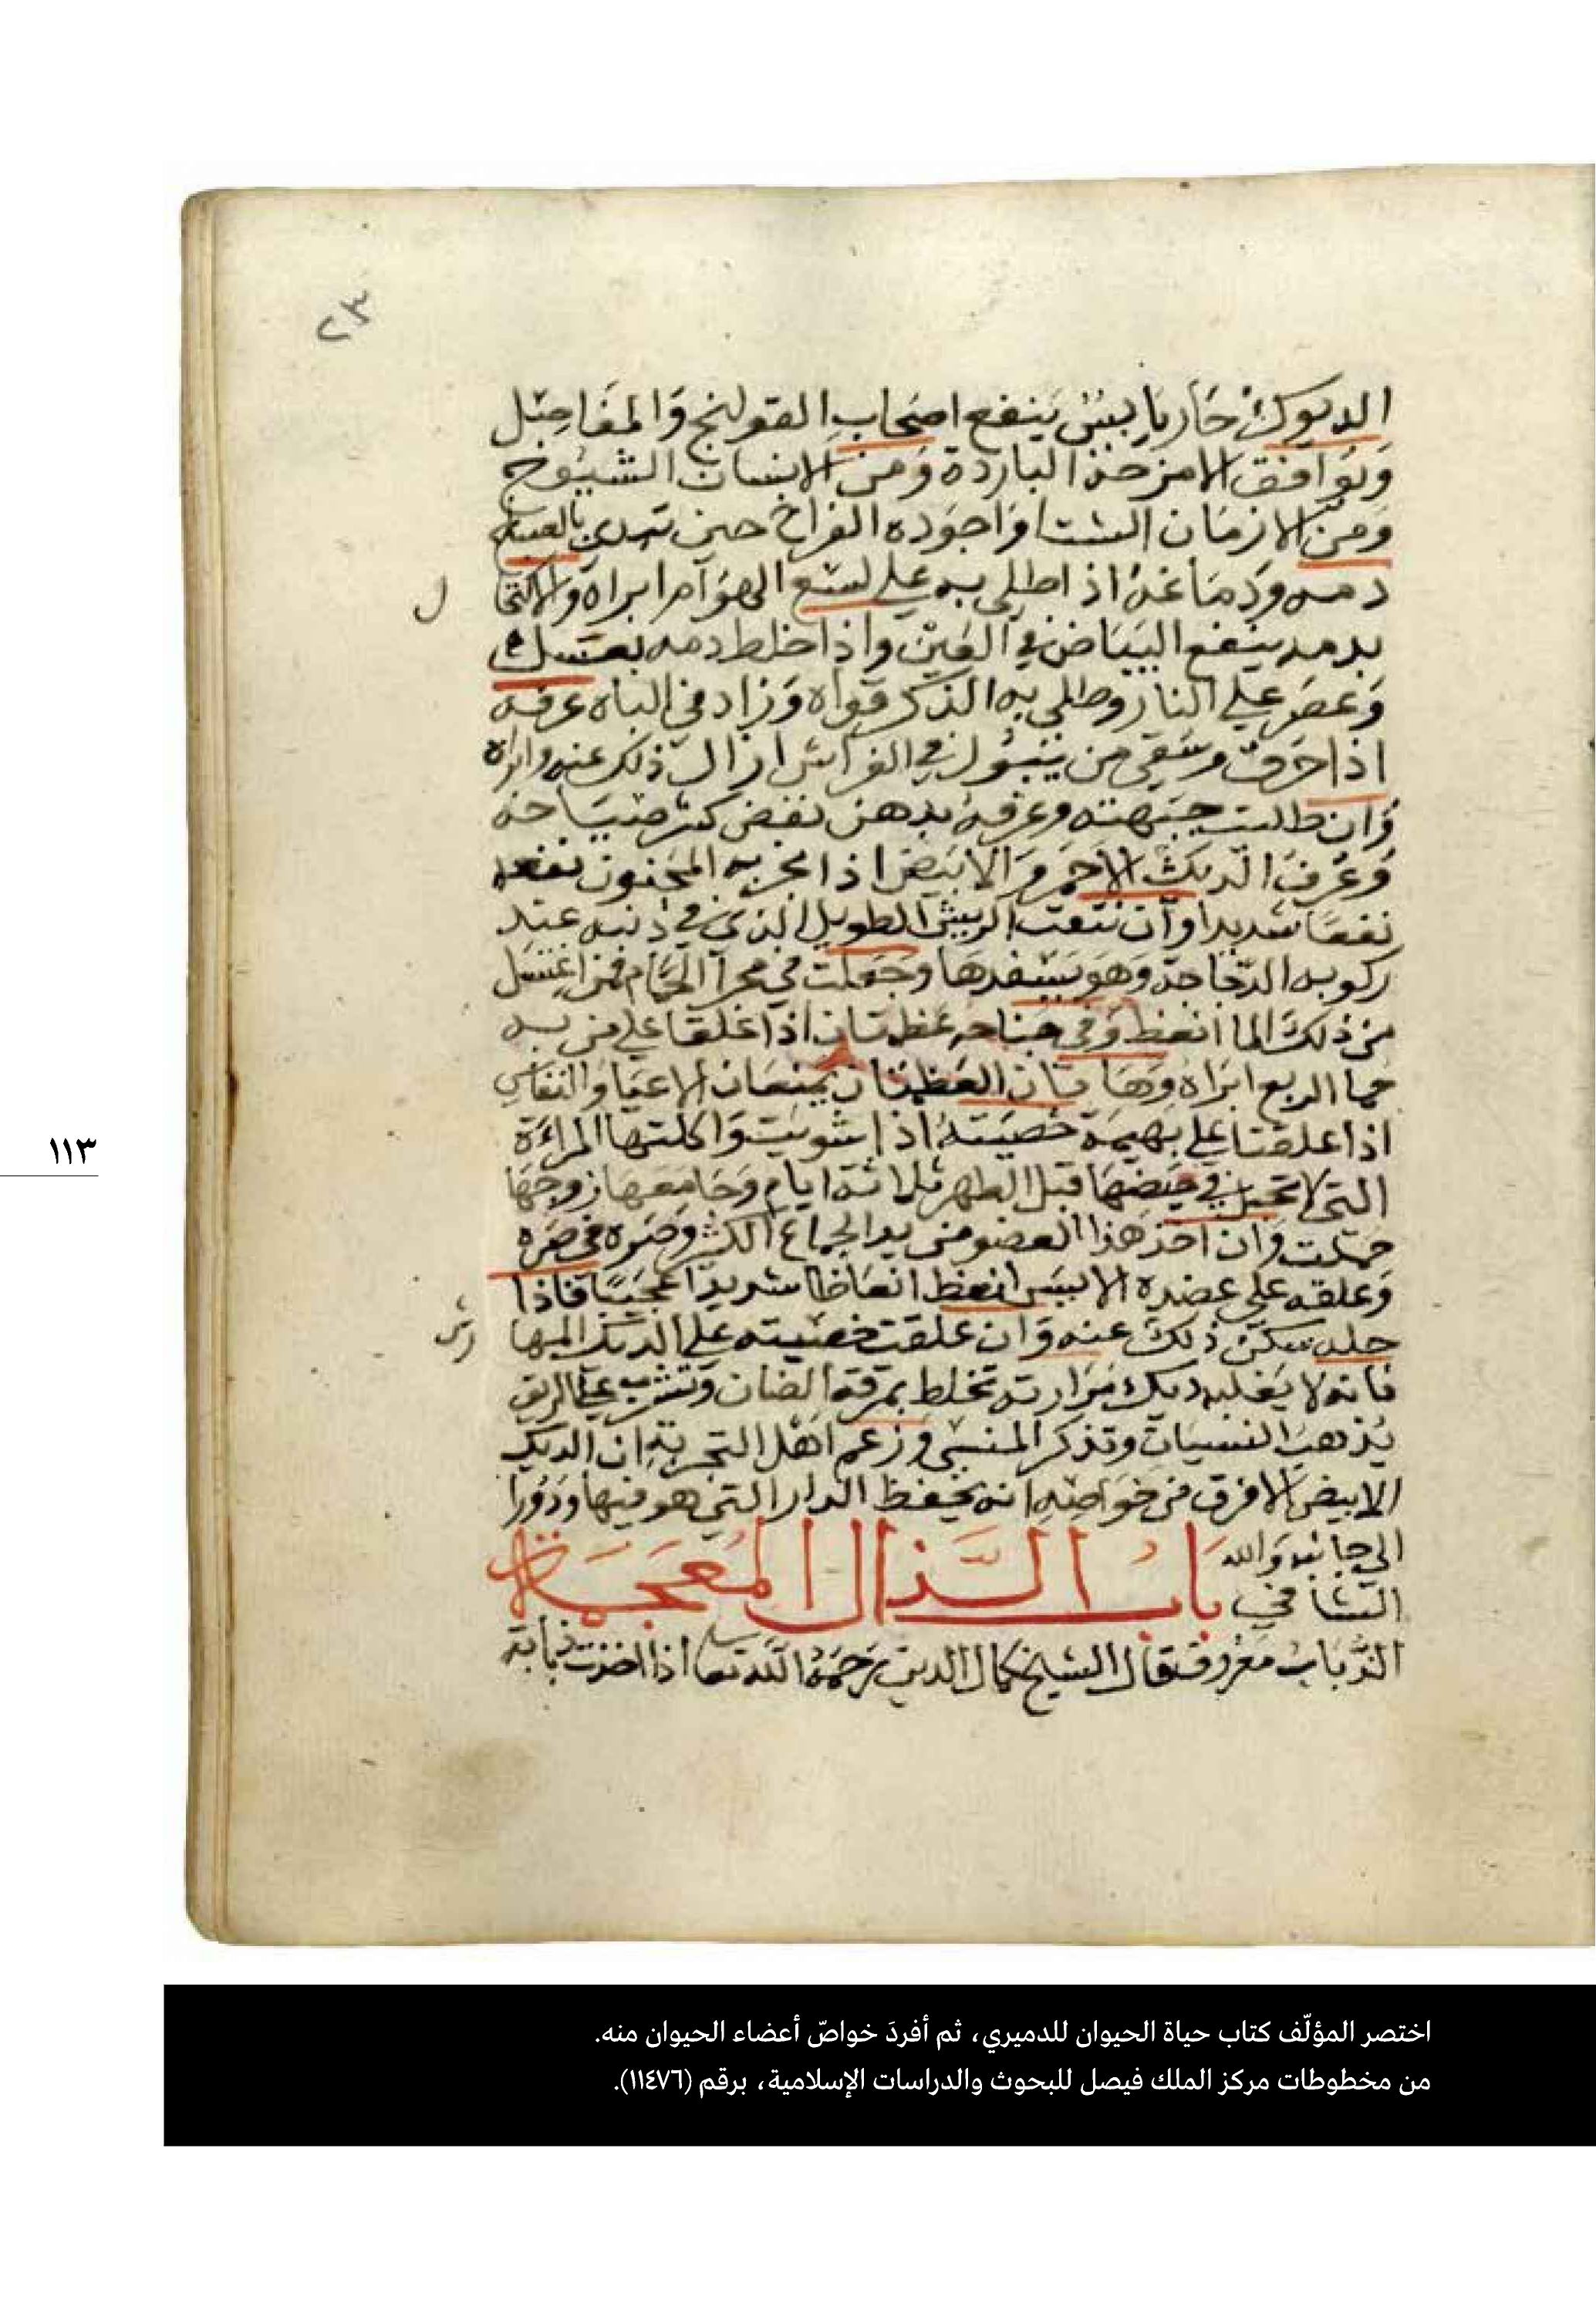 ٢٣
الديوك حار يابس ينفع اصحاب القولنج والمفاصل
ويوافق الامزجة الباردة ومن الاسنان الشيوخ
ومن الازمان الشتا واجوده الفراخ حين تبدى بالصياح
دمه ودماغه اذا طلي به على لسع الهوآم ابراه والاكتحا
ل
بدمه ينفع البياض في العين واذا خلط دمه بعسل
وعصر على النار وطلي به الذكر قواه وزاد في الباه عرفه
اذا حرق وسقى من يتبول في الفراش ازال ذلك عنه وابراه
وان طليت جبهته وعرفه بدهن كثر صياحه
وعرف الديك الاحمر والابيض اذا بخر به المجنون نفعه
نفعا شديدا وان نتفت الريش الطويل الذي في ذنبه عند
ركوبه الدجاجة وهو يسفدها وجعلت في مجرا الحمام فمن اغتسل
من ذلك الما انعظ وفي جناحه عظمتان اذا علقا على من به
حما الربع ابراه وهاتان العظمتان يمنعان الاعيا والنفاس
اذا علقتا على بهيمة خصيته اذا شويت واكلتها المراءة
التي لا تحبل في حيضها قبل الطهر ثلاثة ايام وجامعها زوجها
حملت وان اخذ هذا العضو من يريد الجماع الكثير وصره في صره
وعلقه على عضده الايسر انعظ انعاظا شديدا عجيبا فاذا
حله سكن ذلك عنه وان علقت خصيته على الديك المها
رش
فانه لا يغلبه ديك مرارته تخلط بمرقة الضان وتشرب على الريق
يذهب النسيان وتذكر المنسي وزعم اهل التجربة ان الديك
الابيض الافرق من خواصه انه يحفظ الدار التي هو فيها ودورا
الى جانبه والله
الشافي باب الذال المعجمة
الذباب معروف قال الشيخ كمال الدين رحمه الله تعا اذا اخذت ذبابة
١١٣
اختصر المؤلّف كتاب حياة الحيوان للدميري، ثم أفردَ خواصّ أعضاء الحيوان منه.
من مخطوطات مركز الملك فيصل للبحوث والدراسات الإسلامية، برقم (١١٤٧٦).